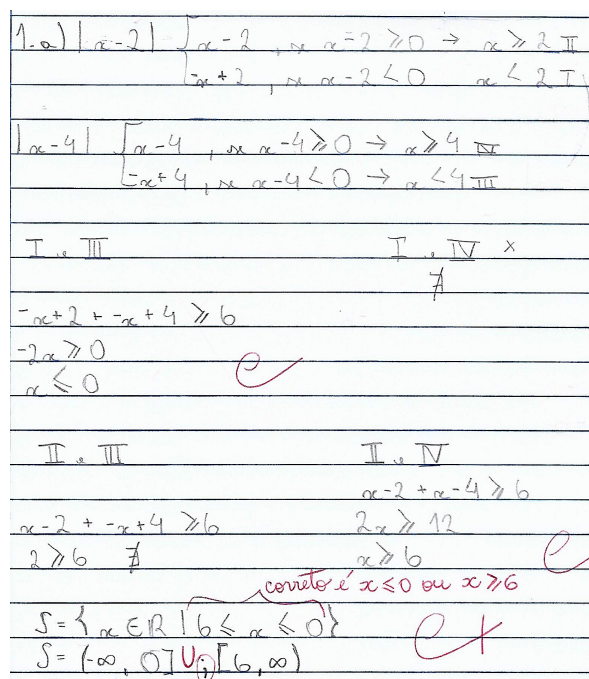 1.a) |x-2| { x-2 , se x-2 ≥ 0 → x ≥ 2 II
-x+2 , se x-2 < 0 x < 2 I
|x-4| { x-4 , se x-4 ≥ 0 → x ≥ 4 IV
-x+4 , se x-4 < 0 → x < 4 III
I e III I e IV x
∄
-x+2 + -x+4 ≥ 6
-2x ≥ 0
x ≤ 0
II e III II e IV
x-2 + x-4 ≥ 6
x-2 + -x+4 ≥ 6 2x ≥ 12
2 ≥ 6 ∄ x ≥ 6
correto é x ≤ 0 ou x ≥ 6
S = { x ∈ R | 6 ≤ x ≤ 0 }
S = (-∞, 0] U ; [6, ∞)